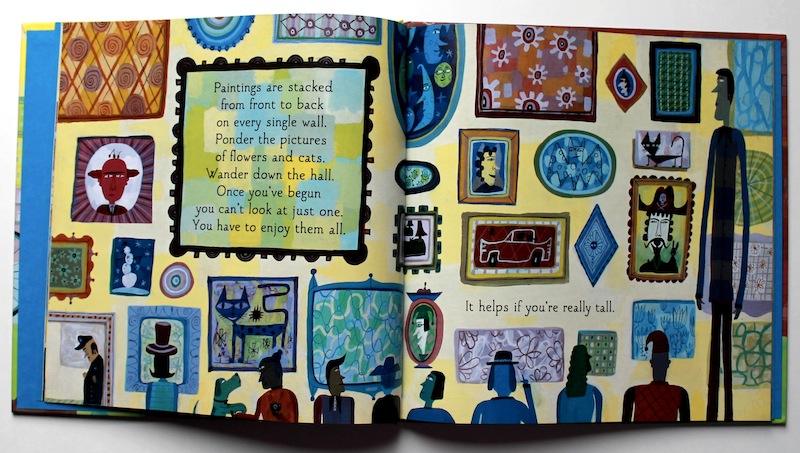 Paintings are stacked
from front to back
on every single wall.
Ponder the pictures
of flowers and cats.
Wander down the hall.
Once you've begun
you can't look at just one.
You have to enjoy them all.
It helps if you're really tall.